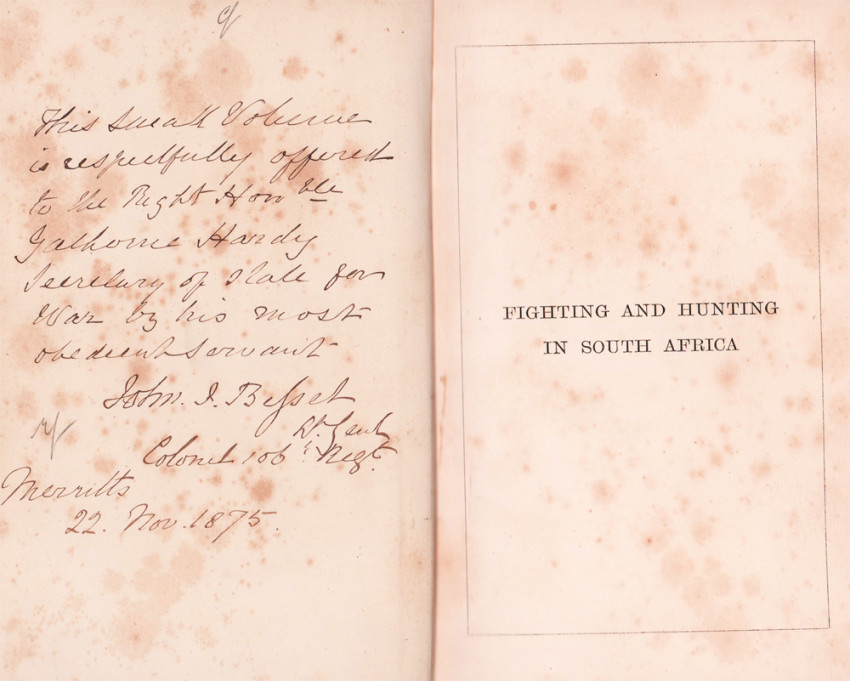 This small Volume
is respectfully offered
to the Right Hon ble
Gathorne Hardy
Secretary of State for
War by his most
obedient Servant
John. J. Bisset
Lt. Genl
Colonel 106th Regt.
Merritts
22. Nov. 1875.
FIGHTING AND HUNTING
IN SOUTH AFRICA